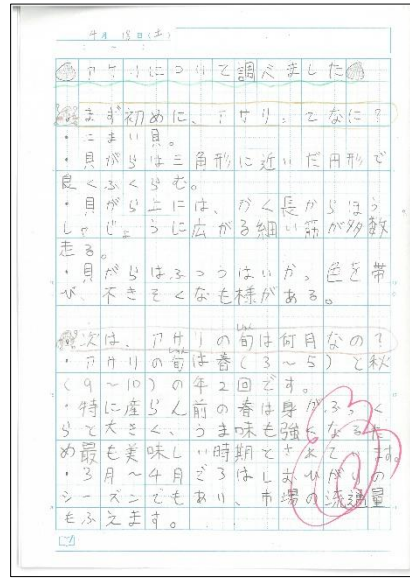 4月 18日(土)
アサリについて調べました
まず初めに、アサリってなに?
・二まい貝。
・貝がらは三角形に近いだ円形で
良くふくらむ。
・貝がら上には、かく長からほう
しゃじょうに広がる細い筋が多数
走る。
・貝がらはふつうはいかっ色を帯
び、不きそくなも様がある。
次は、アサリの旬は何月なの?
しゅん
・アサリの旬は春(3~5)と秋
しゅん
(9~10)の年2回です。
・特に産らん前の春は身がふっく
らと大きく、うま味も強くなるた
め最も美味しい時期とされています。
・3月~4月ごろはしおひがりの
シーズンでもあり、市場の流通量
もふえます。